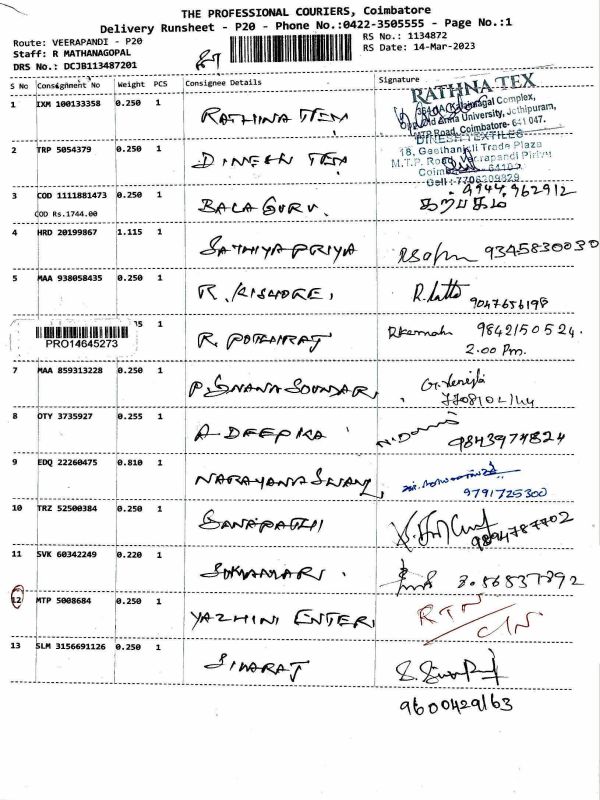 THE PROFESSIONAL COURIERS, Coimbatore
Delivery Runsheet - P20 - Phone No.:0422-3505555 - Page No.:1
Route: VEERAPANDI - P20
RS No.: 1134872
Staff: R MATHANAGOPAL
RS Date: 14-Mar-2023
DRS No.: DCJB113487201
S No Consignment No Weight PCS Consignee Details Signature
1 IXM 100133358 0.250 1 RATHINA TEX
RATHNA TEX
Complex,
Anna University, Jothipuram,
MTP Road, Coimbatore- 641 047.
2 TRP 5054379 0.250 1 DINESH TEX
DINESH TEXTILES
18, Geethanjali Trade Plaza
M.T.P. Road, Veerapandi Pirivu
Cell : 7706209829
3 COD 1111881473 0.250 1 BALA GURU.
9944962912
COD Rs.1744.00
4 HRD 20199867 1.115 1 SATHIYA PRIYA
9345830030
5 MAA 938058435 0.250 1 R. KISHORE,
9047656198
PRO14645273
R. POTHIRAJ
9842150524.
2.00 Pm.
7 MAA 859313228 0.250 1 P. GNANA SOUNDARI
8 OTY 3735927 0.255 1 A DEEPIKA
9843974824
9 EDQ 22260475 0.810 1 NARAYANA SWAMY
9791725300
10 TRZ 52500384 0.250 1 GANAPATHI
9894787702
11 SVK 60342249 0.220 1 SUKUMARI.
12 MTP 5008684 0.250 1 YAZHINI ENTER
RTN
13 SLM 3156691126 0.250 1 SIVARAJ
9600429163